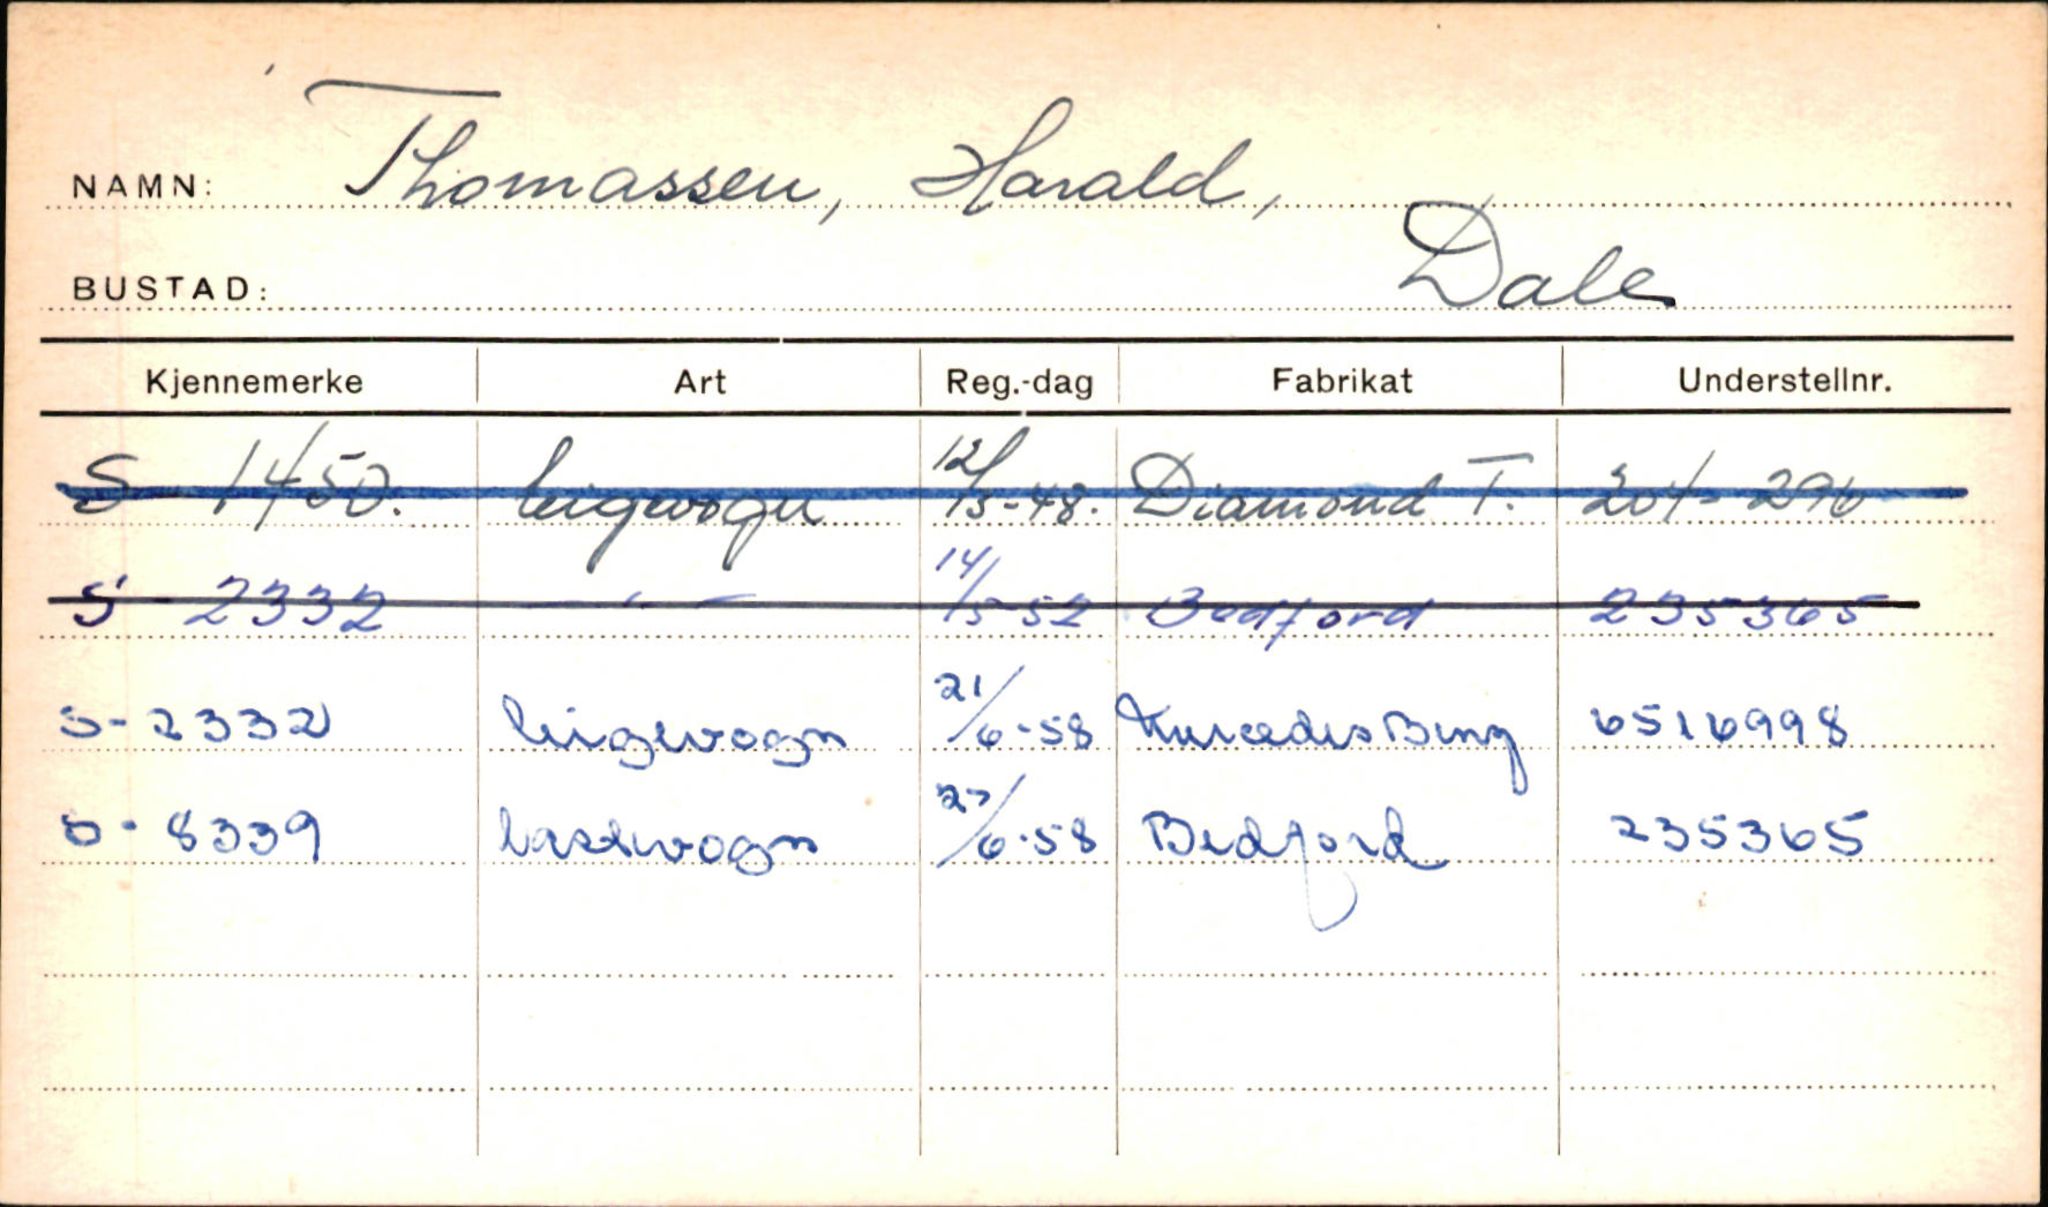 NAMN: Thomassen, Harald,
BUSTAD: Dale
Kjennemerke Art Reg.-dag Fabrikat Understellnr.
S 1450. leigevogn 12/ 13-48. Diamond T. 201-296
S - 2332 - " - 14/5-52 Bedford 235365
S - 2332 leigevogn 21/6-58 Mercedes Benz 6516998
S - 8339 lastevogn 27/6-58 Bedford 235365